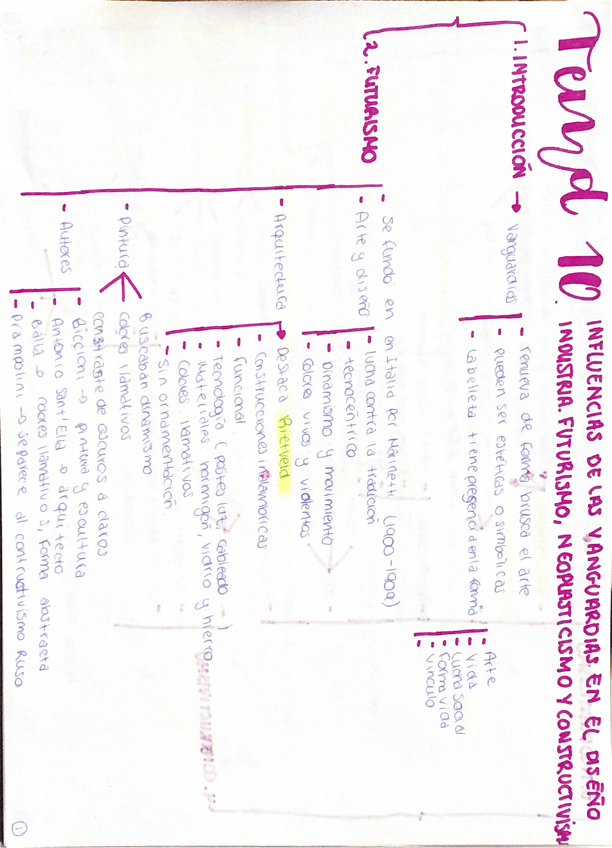 Tema 10.
INFLUENCIAS DE LAS VANGUARDIAS EN EL DISEÑO
INDUSTRIA. FUTURISMO, NEOPLASTICISMO Y CONSTRUCTIVISM
1. INTRODUCCIÓN → Vanguardias
- renueva de forma brusca el arte
- pueden ser estéticas o simbolicas
- La belleza tiene presencia en la forma
- Arte
- Vida
- Lucha social
- Forma vida
- vinculo
2. FUTURISMO
- Se fundó en en Italia por Marineti (1900-1909)
- Arte y diseño
- lucha contra la tradicion
- tecnocéntrico
- Dinamismo y movimiento
- colores vivos y violentos
- Arquitectura
→ Destaca Rietveld
- Construcciones
- Funcional
- Tecnologia (postes luz, cableado...)
- Materiales: hormigon, vidrio y hierro
- Colores llamativos
- Sin ornamentación
- Pintura
Buscaban dinamismo
Colores llamativos
constraste de oscuros a claros
- Autores
- Biccioni → pintura y escultura
- Antonio Sant'Elia → arquitecto
- Balla → colores llamativos, forma abstraeta
- Prampolini → se parece al contructivismo Ruso
1